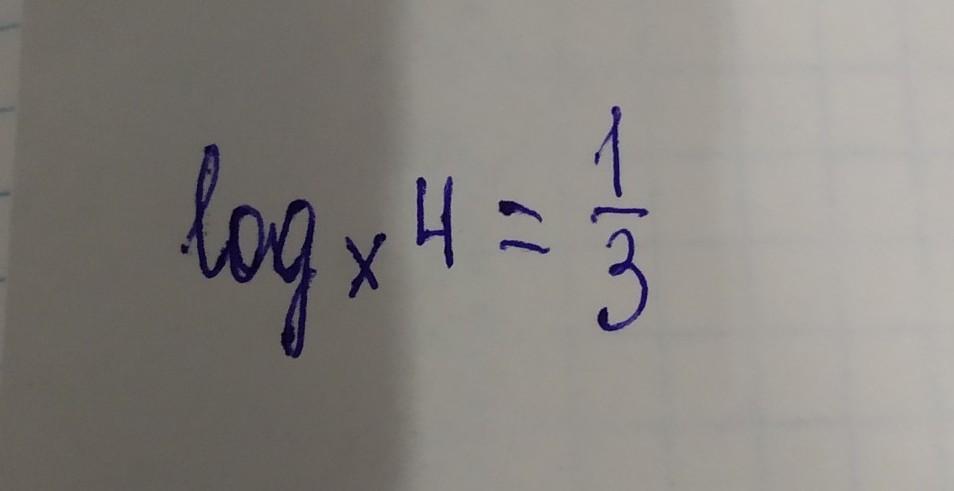 logₓ 4 = 1/3